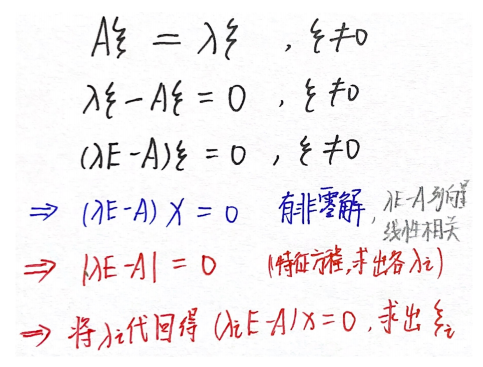 Aξ = λξ , ξ≠0
λξ-Aξ = 0 , ξ≠0
(λE-A)ξ = 0 , ξ≠0
⇒ (λE-A) X = 0 有非零解, λE-A列向量
线性相关
⇒ |λE-A| = 0 (特征方程,求出各λi)
⇒ 将λi代回得 (λiE-A)x=0 , 求出 ξi